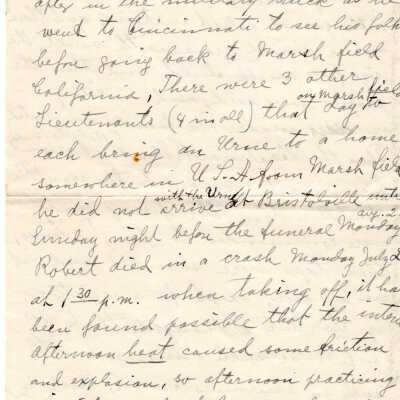 after in the military truck as he
went to Cincinnati to see his folk
before going back to Marsh field
California, There were 3 other
on Marsh field
Lieutenants (4 in all) that day to
each bring an Urne to a home
somewhere in U.S.A. from Marsh field
with the Urne
he did not arrive at Bristolville until
aug. 2
Sunday night before the funeral Monday
Robert died in a crash Monday July 2
at 1 30 p.m. when taking off, it ha
been found possible that the inten
afternoon heat caused some friction
and explosion, so afternoon practicing